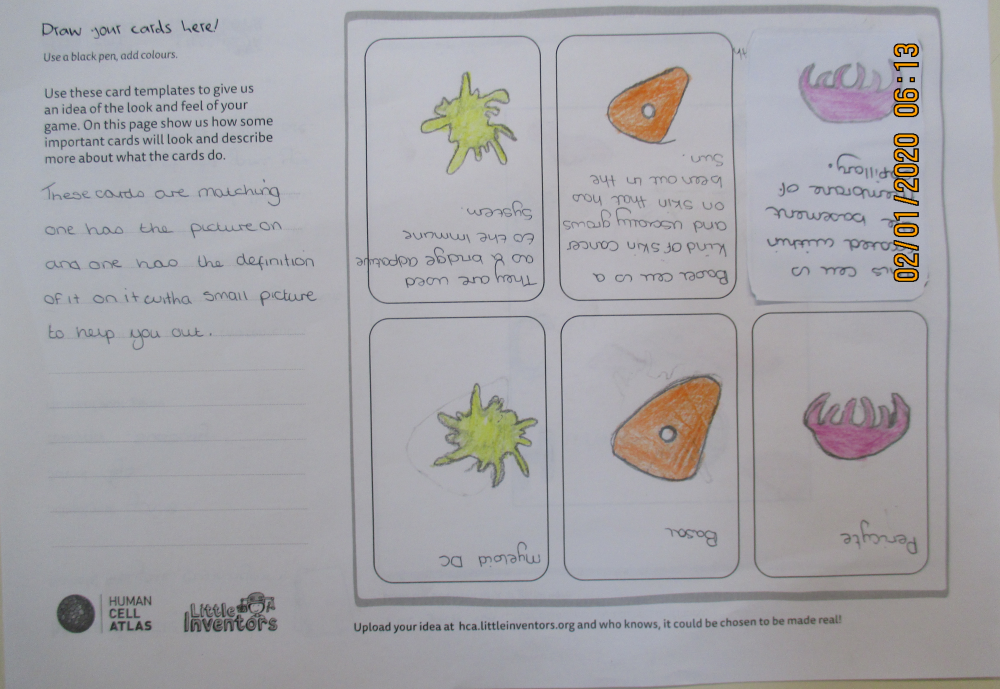 Draw your cards here!
Use a black pen, add colours.
Use these card templates to give us
an idea of the look and feel of your
game. On this page show us how some
important cards will look and describe
more about what the cards do.
These cards are matching
one has the picture on
and one has the definition
of it on it with a small picture
to help you out.
They are used
as & bridge adpative
to the immune
System.
Basel cell is a
kind of skin cancer
and ususally grows
on skin that has
been out in the
Sun.
cell is
within
basement
of
myeloid DC
Basal
Pericyte
02/01/2020 06:13
HUMAN
CELL
ATLAS
Little
Inventors
Upload your idea at hca.littleinventors.org and who knows, it could be chosen to be made real!